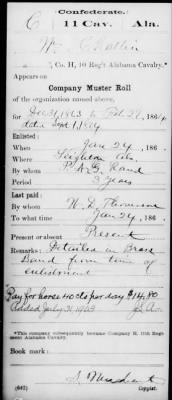 Confederate.
C 11 Cav. Ala.
Wm
Co. H, 10 Reg't Alabama Cavalry.*
Appears on
Company Muster Roll
of the organization named above,
for Dec 31, 1863 to Feb 29, 1864
dated Sept 1, 1864
Enlisted:
When Jan 24, 186 .
Where Leighton Ala.
By whom P. A. G. Rand
Period 3 Years
Last paid:
By whom W. D. Thomason
To what time Jan 24, 186 .
Present or absent Present
Remarks: Detailed in Brass
Band from time of
enlistment
Pay for horse 40 cts per day $14.80
Added July 31, 1963
*This company subsequently became Company H, 11th Regiment Alabama Cavalry.
Book mark:
(642) Copyist.